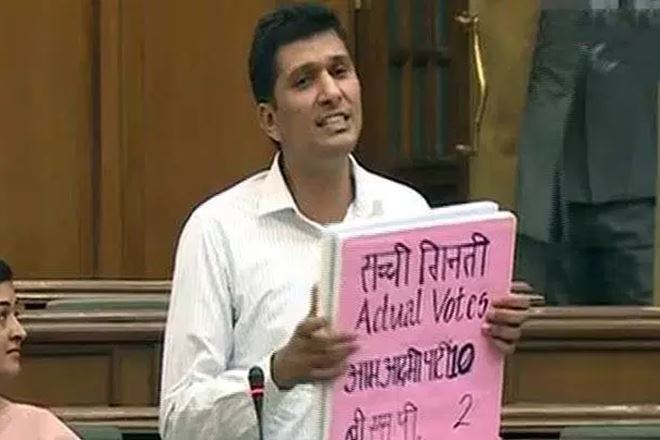 सच्ची गिनती
Actual Votes
आम आदमी पार्टी 10
बी.एस.पी. 2